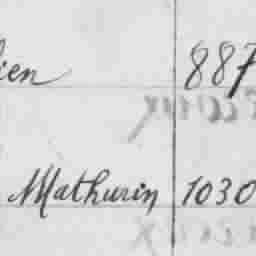 ien 887
Mathurin 1030